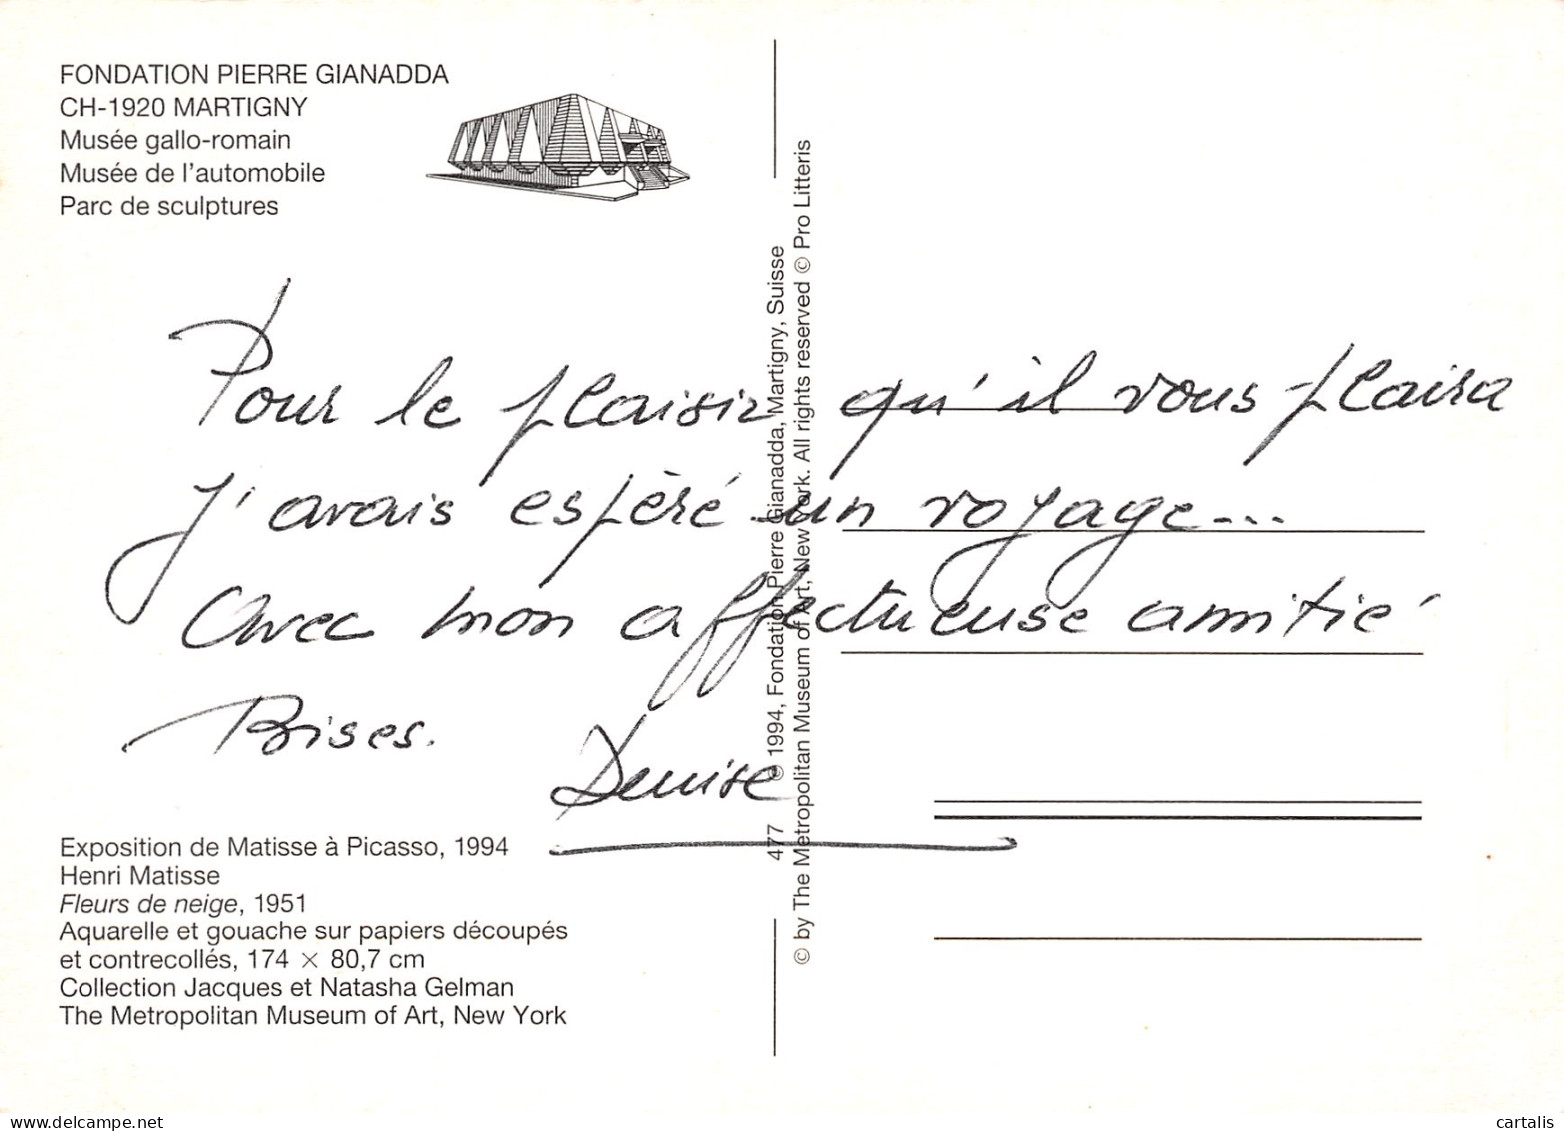 FONDATION PIERRE GIANADDA
CH-1920 MARTIGNY
Musée gallo-romain
Musée de l'automobile
Parc de sculptures
Pour le plaisir qu'il vous plaira
J'avais espéré un voyage...
Avec mon affectueuse amitié
Bises.
Denise
Exposition de Matisse à Picasso, 1994
Henri Matisse
Fleurs de neige, 1951
Aquarelle et gouache sur papiers découpés
et contrecollés, 174 × 80,7 cm
Collection Jacques et Natasha Gelman
The Metropolitan Museum of Art, New York
477 © 1994, Fondation Pierre Gianadda, Martigny, Suisse
© by The Metropolitan Museum of Art, New York. All rights reserved © Pro Litteris
https://www.delcampe.net
cartalis